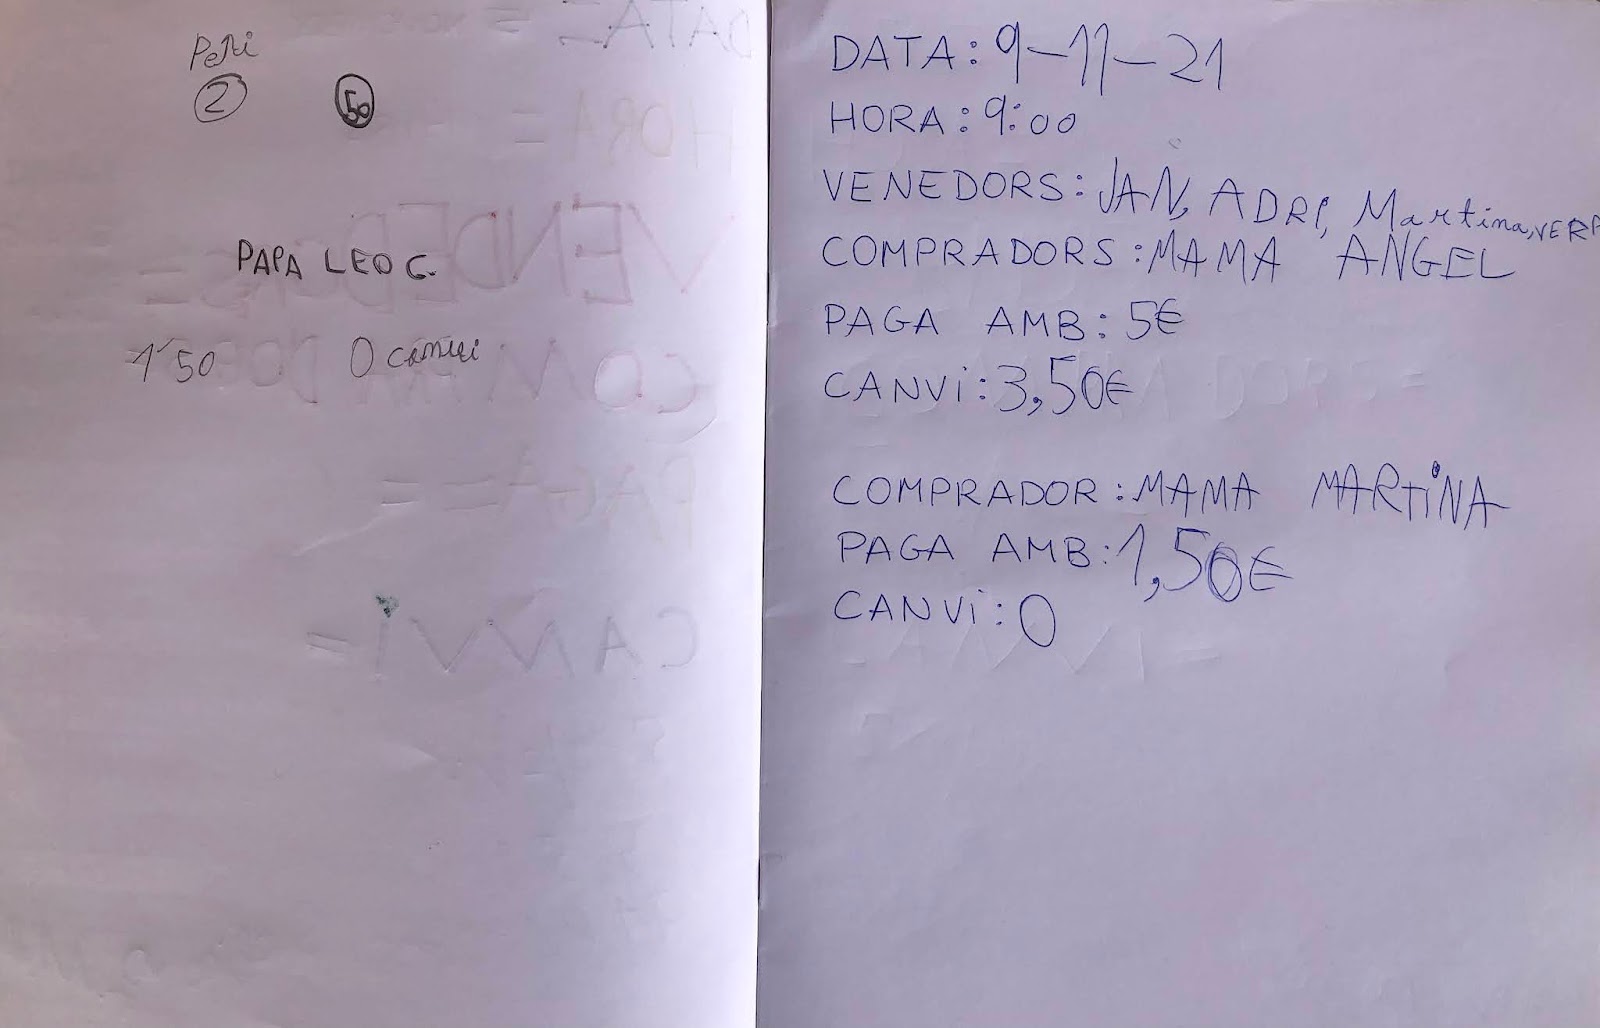 Petri
2 50
PAPA LEO C.
1'50 0 canvi
DATA: 9-11-21
HORA: 9:00
VENEDORS: JAN, ADRI, Martina, VERA
COMPRADORS: MAMA ANGEL
PAGA AMB: 5€
CANVi: 3,50€
COMPRADOR: MAMA MARTiNA
PAGA AMB: 1,50€
CANVi: 0